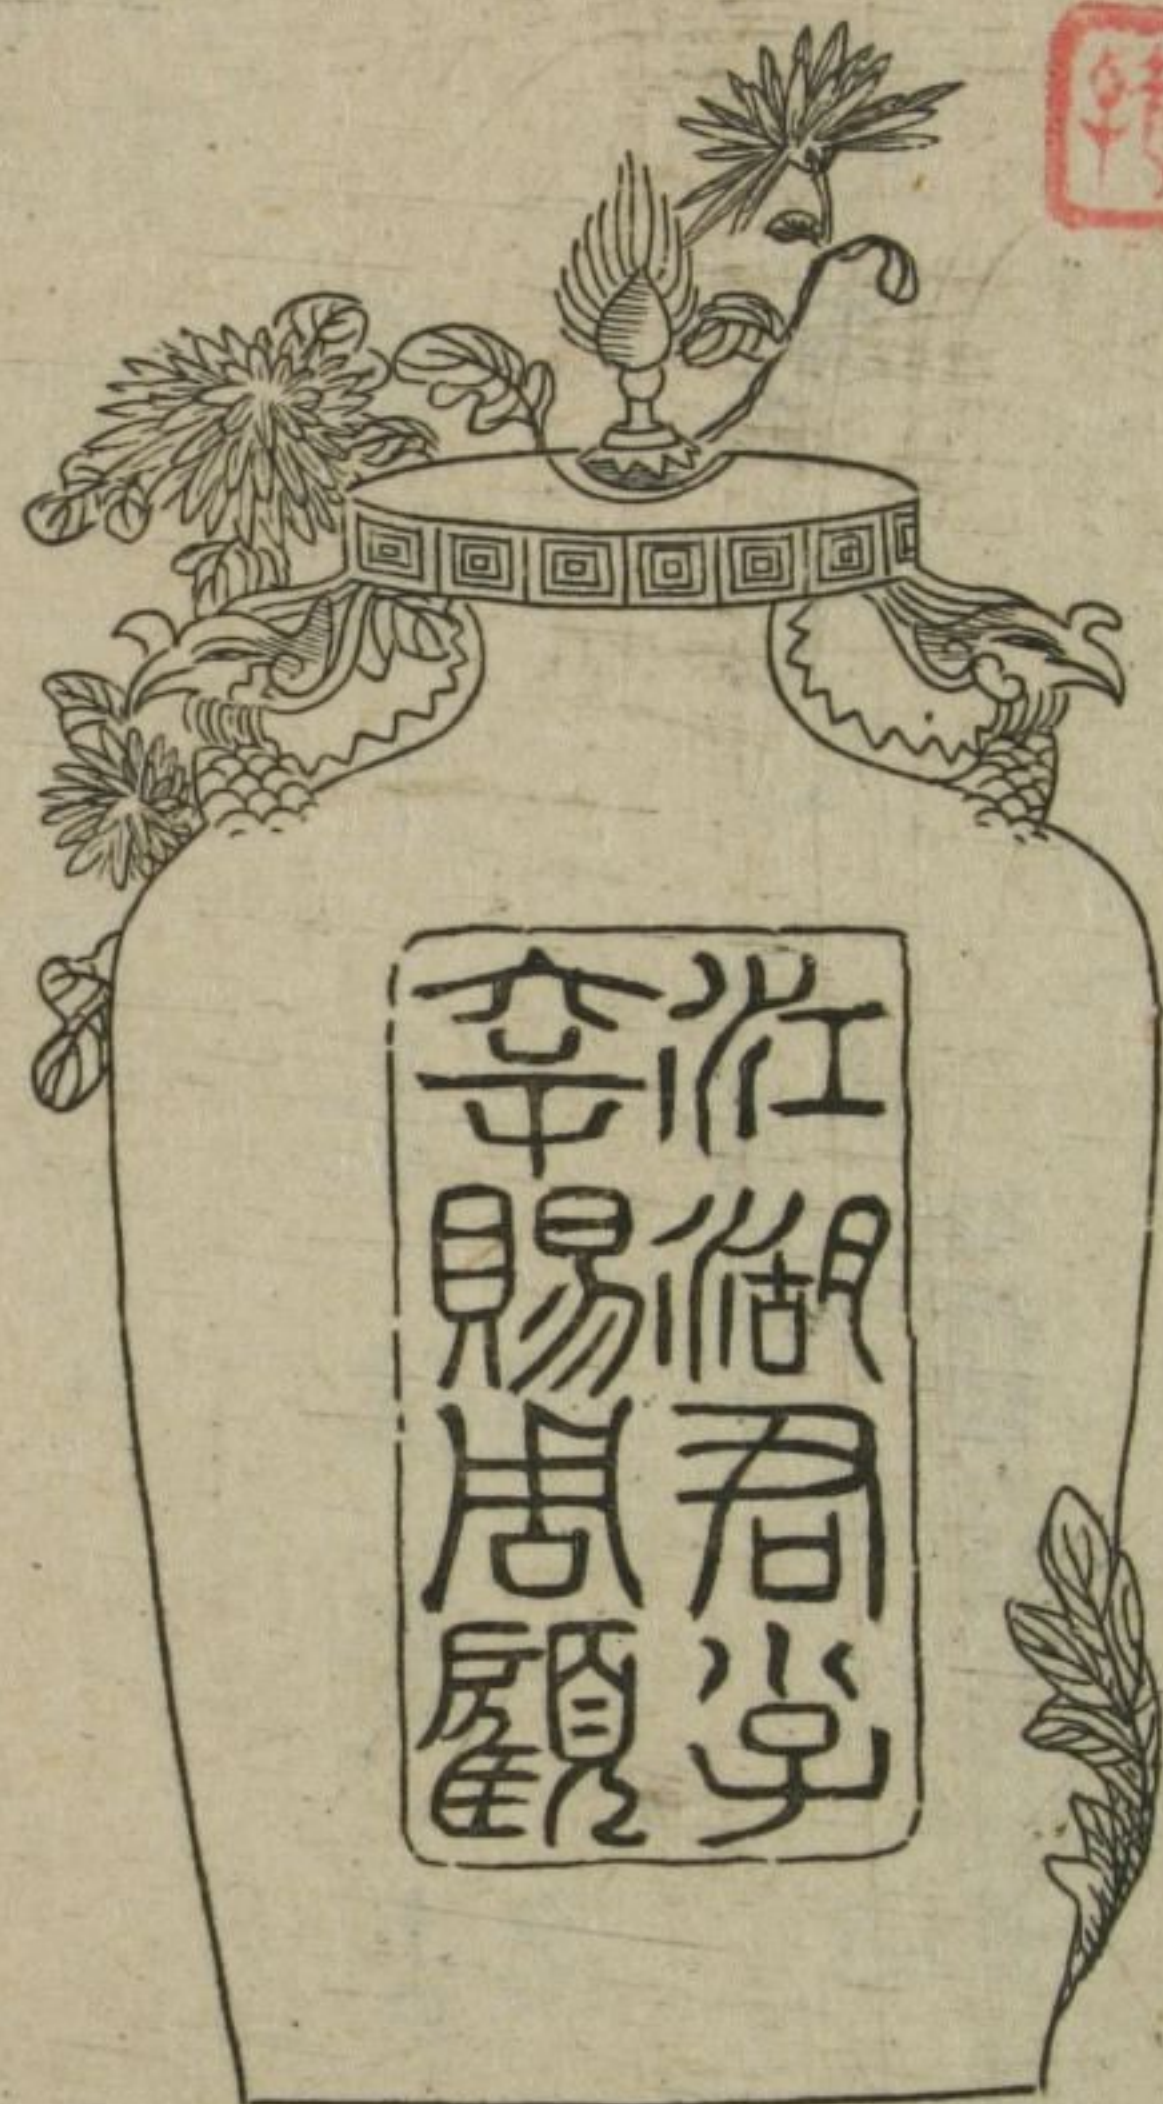 江湖君子
幸賜周顧